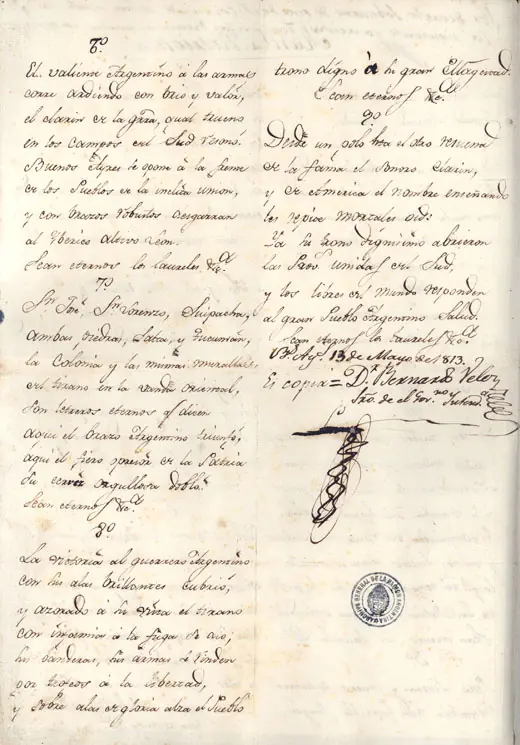 6º
El valiente Argentino á las armas
corre ardiendo con brio y valor,
el clarin de la grra, qual trueno
en los campos del Sud resonó.
Buenos Ayres se opone á la frente
de los Pueblos de la inclita union,
y con brazos robustos desgarran
al Iberico altivo Leon.
Sean eternos los laureles &ca
7º
Sn José, Sn Lorenzo, Suipacha,
ambas Piedras, Salta, y Tucumán,
la Colonia y las mismas murallas
del tirano en la vanda Oriental,
son letreros eternos q dicen
aqui el brazo Argentino triunfó,
aqui el fiero opresor de la Patria
su cerviz orgullosa dobló.
Sean eternos &ca
8º
La victoria al guerrero Argentino
con sus alas brillantes cubrió,
y azorado á su vista el tirano
con infamia á la fuga se dió;
sus banderas, sus armas se rinden
por trofeos á la libertad,
y sobre alas de gloria alza el Pueblo
trono digno á su gran Magestad.
Sean eternos &ca
9º
Desde un polo hta el otro resuena
de la fama el sonoro clarin,
y de America el nombre enseñando
les repite mortales oid:
Ya su trono dignisimo abrieron
las Provs unidas del Sud,
y los libres del mundo responden
al gran Pueblo Argentino Salud.
Sean eternos los laureles &ca
Bs Ays 13 de Mayo de 1813.
Es copia = Dn Bernardo Velez
Srio. de el Govno y Intenda
ARCHIVO GENERAL DE LA NACION